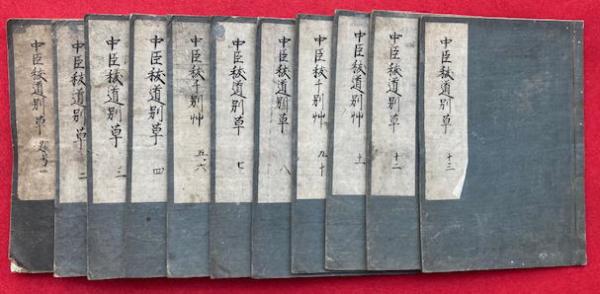 中臣秡道別草 一
中臣秡道別草 二
中臣秡道別草 三
中臣秡道別草 四
中臣秡千別艸 五・六
中臣秡道別草 七
中臣秡道別草 八
中臣秡千別艸 九・十
中臣秡道別艸 十一
中臣秡道別草 十二
中臣秡道別草 十三